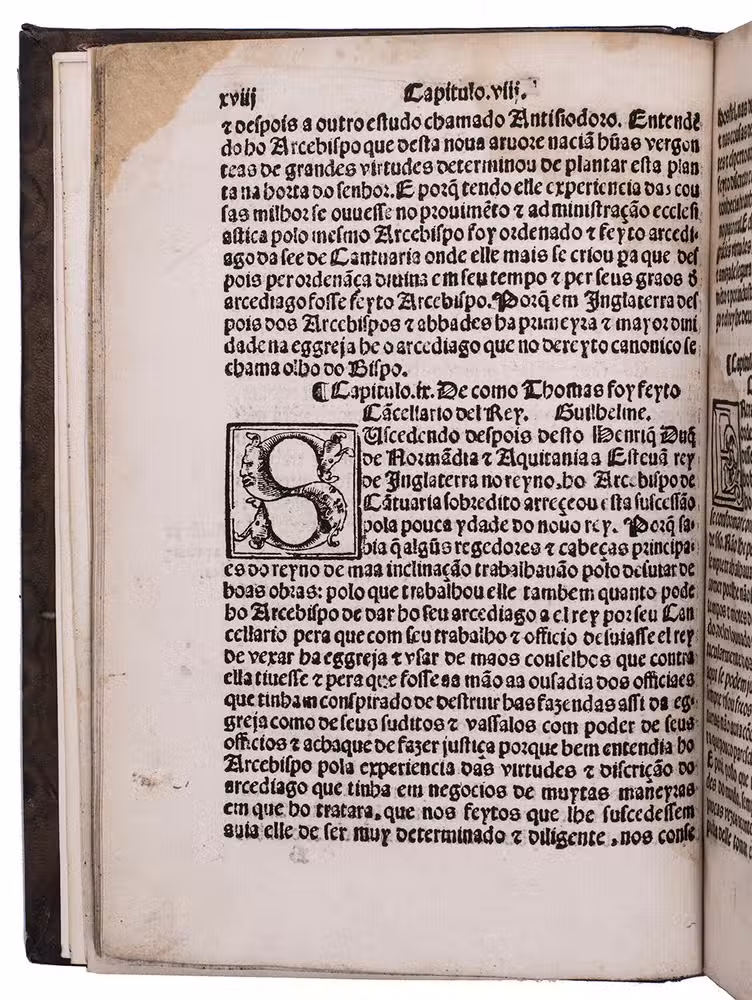 xviij
Capitulo.viij.
⁊ despois a outro estudo chamado Antisiodoro. Entendẽ
do ho Arcebispo que desta noua aruore naciã hũas vergon
teas de grandes virtudes determinou de plantar esta plan
ta na horta do senhor. E porq̃ tendo elle experiencia das cou
sas milhor se ouuesse no prouimẽto ⁊ administração ecclesi
astica polo mesmo Arcebispo foy ordenado ⁊ feyto arcedi-
ago da see de Cantuaria onde elle mais se criou p̱a que des
pois per ordenãça diuina em seu tempo ⁊ per seus graos d̃
arcediago fosse feyto Arcebispo. Porq̃ em Inglaterra des
pois dos Arcebispos ⁊ abbades ha primeyra ⁊ mayor dini
dade na eggreja he o arcediago que no dereyto canonico se
chama olho do Bispo.
¶ Capitulo.ix. De como Thomas foy feyto
Cãcellario del Rey. Guilhelme.
SUscedendo despois desto Henriq̃ Duq̃
de Normãdia ⁊ Aquitania a Esteuã rey
de Inglaterra no reyno, ho Arcebispo de
Cãtuaria sobredito arreçeou esta suscessão
pola pouca ydade do nouo rey. Porq̃ sa-
bia q̃ algũs regedores ⁊ cabeças principa-
es do reyno de maa inclinação trabalhauão polo desutar de
boas obras: polo que trabalhou elle tambem quanto pode
ho Arcebispo de dar ho seu arcediago a el rey por seu Can
cellario pera que com seu trabalho ⁊ officio desuiasse el rey
de vexar ha eggreja ⁊ vsar de maos conselhos que contra
ella tiuesse ⁊ pera que fosse aa mão aa ousadia dos officiaes
que tinham conspirado de destruir has fazendas assi da eg-
greja como de seus suditos ⁊ vassalos com poder de seus
officios ⁊ achaque de fazer justiça porque bem entendia ho
Arcebispo pola experiencia das virtudes ⁊ discrição do
arcediago que tinha em negocios de muytas maneyras
em que ho tratara, que nos feytos que lhe suscedessem
auia elle de ser muy determinado ⁊ diligente, nos conse